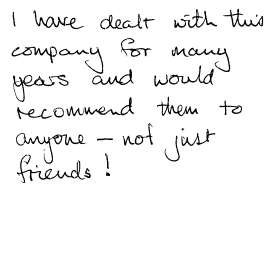 I have dealt with this
company for many
years and would
recommend them to
anyone – not just
friends!